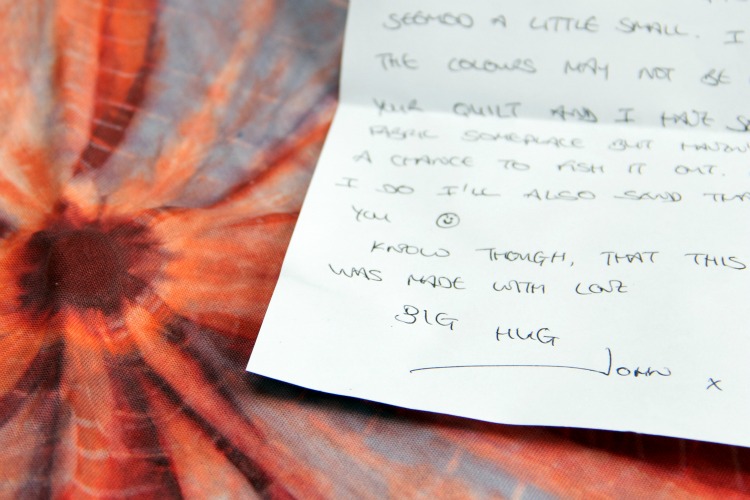 SEEMED A LITTLE SMALL. I
THE COLOURS MAY NOT BE
YOUR QUILT AND I HAVE
FABRIC SOMEPLACE BUT
A CHANCE TO FISH IT OUT.
I DO I'LL ALSO SEND
YOU ☺
KNOW THOUGH, THAT THIS
WAS MADE WITH LOVE
BIG HUG
JOHN X